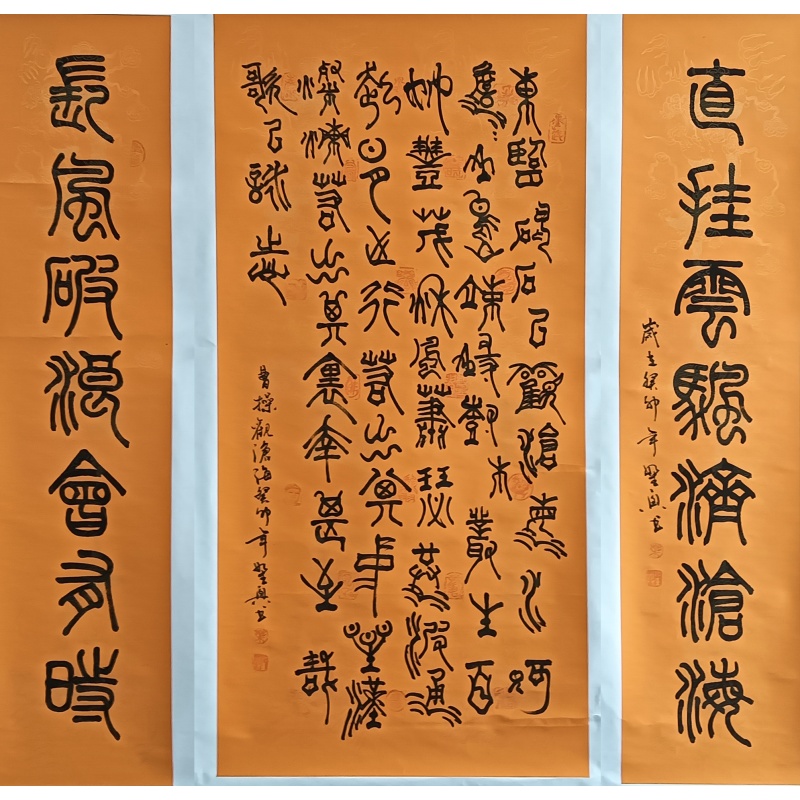 直挂雲颿濟滄海
歲在癸卯年
東臨碣石以觀滄海水何
澹〻山島竦峙樹木叢生百
艸豐茂秋風蕭瑟洪波涌
起日月之行若出其中星漢
燦爛若出其裏幸甚至哉
歌以詠志
曹操觀滄海癸卯年
長風破浪會有時